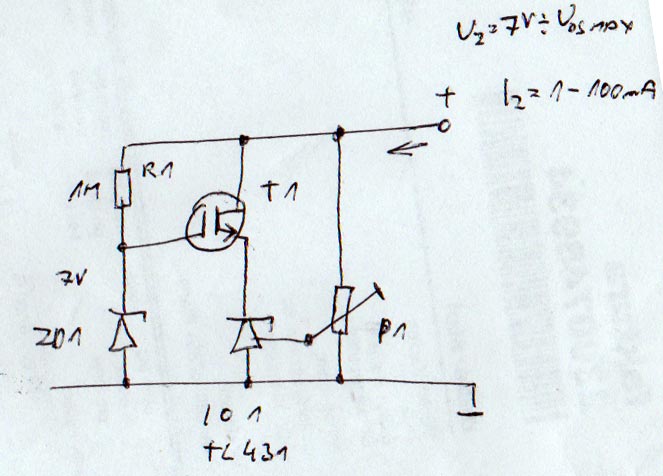 U2=7V÷UDSMAX
I2=1-100mA
+
1M R1
T1
7V
ZD1
P1
IO1
TL431